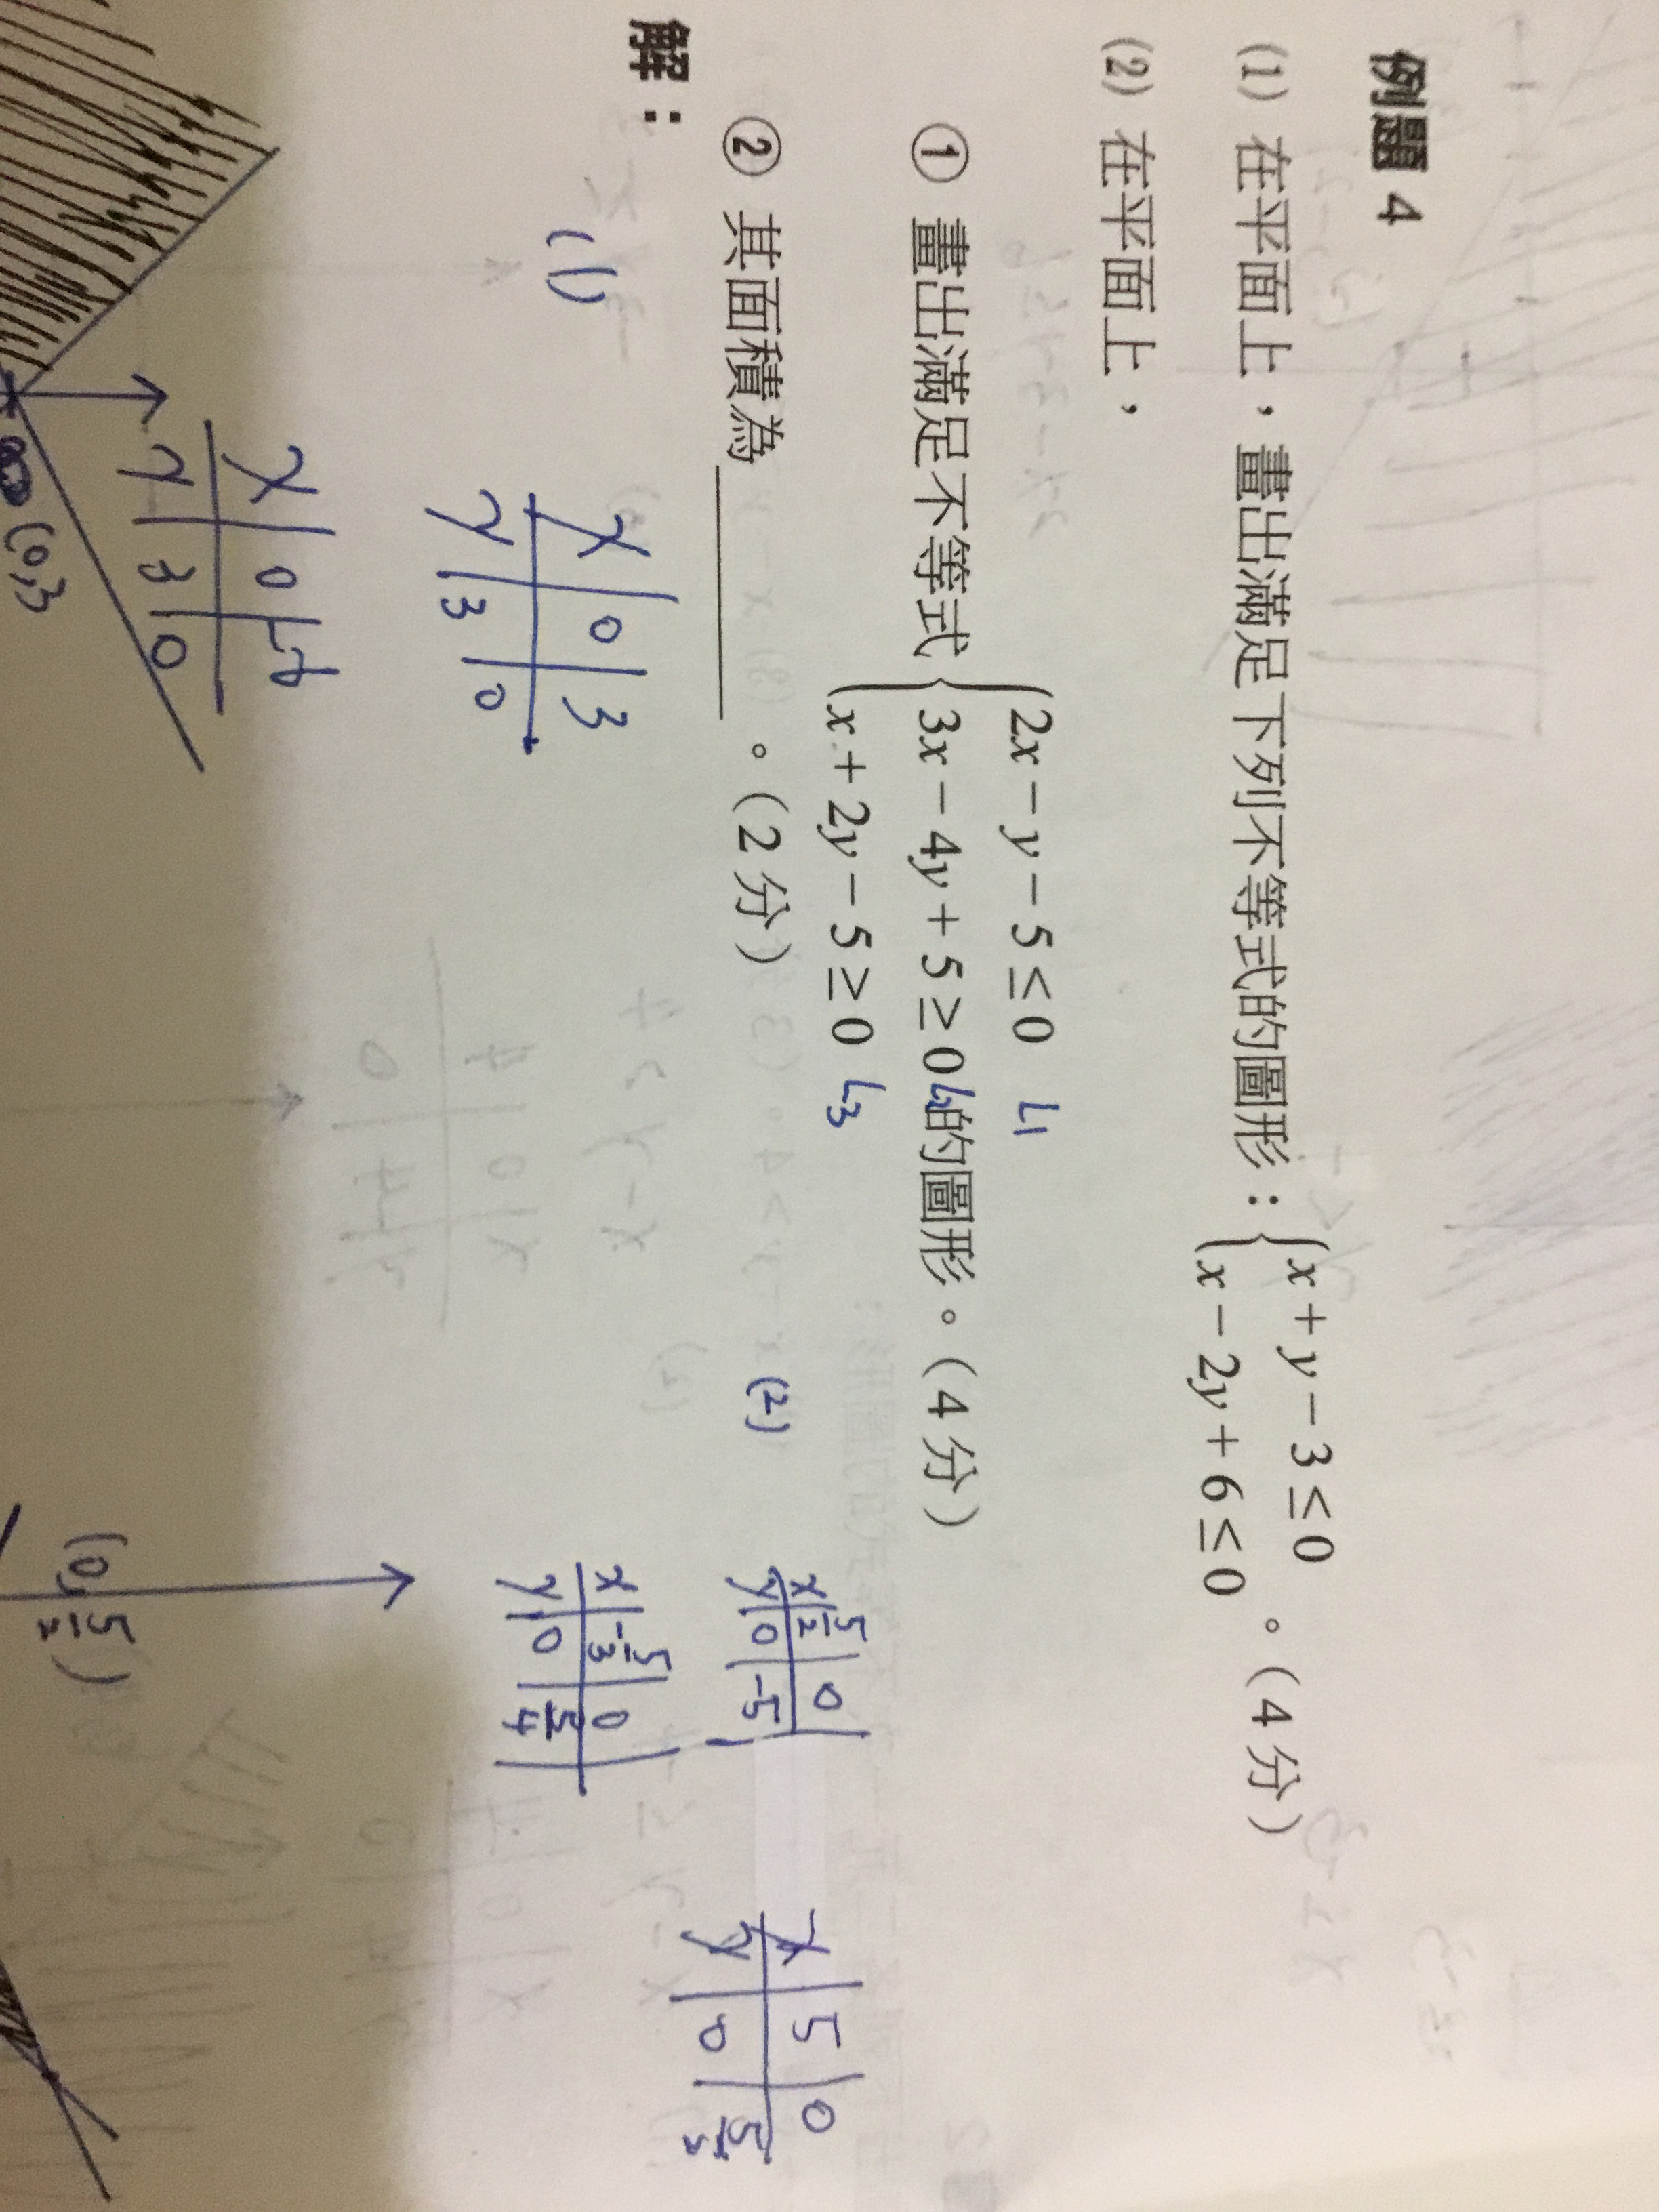 例題 4
(1) 在平面上，畫出滿足下列不等式的圖形：{x+y−3≤0
x−2y+6≤0 。(4 分)
(2) 在平面上，
① 畫出滿足不等式 {2x−y−5≤0 L1
3x−4y+5≥0 L2 的圖形。(4 分)
x+2y−5≥0 L3
② 其面積為______。(2 分)
解：
(1)
x | 0 | 3
y | 3 | 0
x | 0 | -6
y | 3 | 0
(0,3
(2)
x | 5/2 | 0
y | 0 | -5
x | -5/3 | 0
y | 0 | 5/4
x | 5 | 0
y | 0 | 5/2
(0, 5/2)